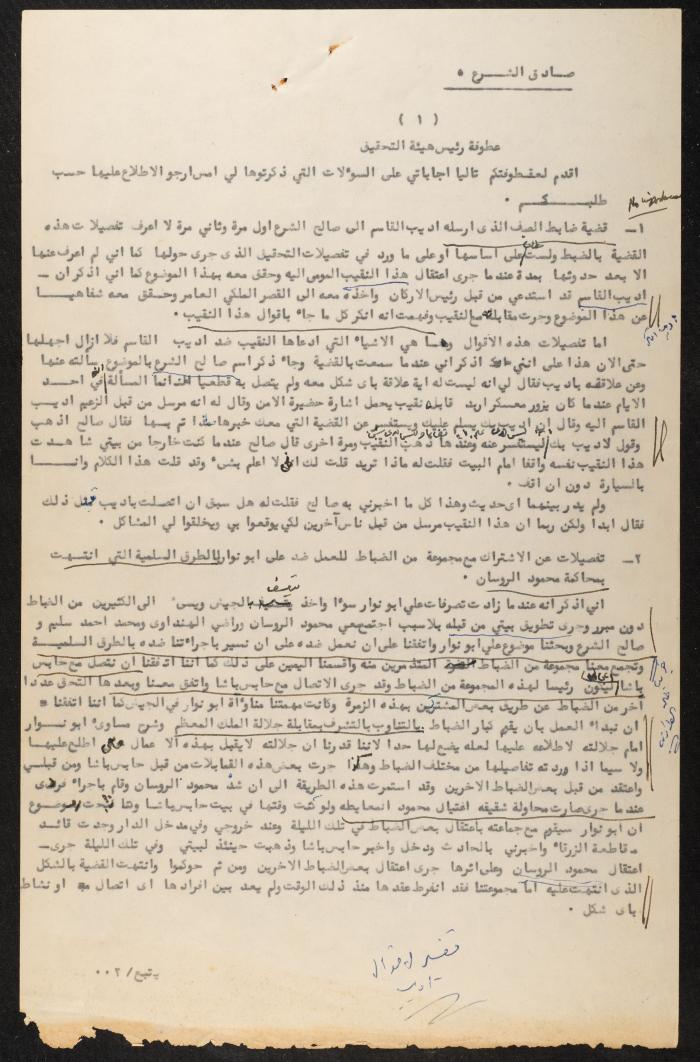 صادق الشرع •
( ١ )
عطوفة رئيس هيئة التحقيق
اقدم لعطوفتكم تاليا اجاباتي على السؤلات التي ذكرتوها لي امس ارجو الاطلاع عليها حسب
طلبكم •
١ـ قضية ضابط الصف الذى ارسله اديب القاسم الى صالح الشرع اول مرة وثاني مرة لا اعرف تفصيلات هذه
القضية بالضبط ولست على اساسها او على ما ورد في تفصيلات التحقيق الذى جرى حولها كما اني لم اعرف عنها
الا بعد حدوثها بمدة عندما جرى اعتقال هذا النقيب المومى اليه وحقق معه بهذا الموضوع كما اني اذكر ان ـ
اديب القاسم قد استدعي من قبل رئيس الاركان واخذه معه الى القصر الملكي العامر وحقق معه شفاهيا
عن هذا الموضوع وجرت مقابلة مع النقيب وفهمت انه انكر كل ما جاء باقوال هذا النقيب •
اما تفصيلات هذه الاقوال وما هي الاشياء التي ادعاها النقيب ضد اديب القاسم فلا ازال اجهلها
حتى الان هذا على انني اذكر اني عندما سمعت بالقضية وجاء ذكر اسم صالح الشرع بالموضوع سألته عنها
وعن علاقته باديب فقال لي انه ليست له اية علاقة باى شكل معه ولم يتصل به قطعيا انما المسألة في احد
الايام عندما كان يزور معسكر اربد قابله نقيب يحمل اشارة حضيرة الامن وقال له انه مرسل من قبل الزعيم اديب
القاسم اليه وقال له اديب بك يسلم عليك ويستفسر عن القضية التي معك خبرها ماذا تم بها فقال صالح اذهب
وقول لاديب بك ليستفسر عنه وعندها ذهب النقيب ومرة اخرى قال صالح عندما كنت خارجا من بيتي شاهدت
هذا النقيب نفسه واقفا امام البيت فقلت له ماذا تريد قلت لك اني لا اعلم بشيء وقد قلت هذا الكلام وانا
بالسيارة دون ان اقف •
ولم يدر بينهما اى حديث وهذا كل ما اخبرني به صالح فقلت له هل سبق ان اتصلت باديب قبل ذلك
فقال ابدا ولكن ربما ان هذا النقيب مرسل من قبل ناس آخرين لكي يوقعوا بي ويخلقوا لي المشاكل •
٢ـ تفصيلات عن الاشتراك مع مجموعة من الضباط للعمل ضد على ابو نوار بالطرق السلمية التي انتهت
بمحاكمة محمود الروسان •
اني اذكر انه عندما زادت تصرفات علي ابو نوار سوءا واخذ بالجيش ويسيء الى الكثيرين من الضباط
دون مبرر وجرى تطويق بيتي من قبله بلا سبب اجتمع بي محمود الروسان وراضي الهنداوى ومحمد احمد سليم و
صالح الشرع وبحثنا موضوع علي ابو نوار واتفقنا على ان نعمل ضده على ان نسير باجراءتنا ضده بالطرق السلمية
وتجمع معنا مجموعة من الضباط المتذمرين منه واقسمنا اليمين على ذلك كما اننا اتفقنا ان نتصل مع حابس
باشا ليكون رئيسا لهذه المجموعة من الضباط وقد جرى الاتصال مع حابس باشا واتفق معنا وبعدها التحق عددا
آخر من الضباط عن طريق بعض المشتركين بهذه الزمرة وكانت مهمتنا مناوأة ابو نوار في الجيش كما اننا اتفقنا •
ان نبداء العمل بان يقيم كبار الضباط بالتناوب بالتشرف بمقابلة جلالة الملك المعظم وشرح مساوىء ابو نوار
امام جلالته لاطلاعه عليها لعله يضع لها حدا لاننا قدرنا ان جلالته لا يقبل بهذه الاعمال اطلع عليها
ولا سيما اذا وردته تفاصيلها من مختلف الضباط وهكذا جرت بعض هذه المقابلات من قبل حابس باشا ومن قبلي
واعتقد من قبل بعض الضباط الاخرين وقد استمرت هذه الطريقة الى ان شذ محمود الروسان وقام باجراء فردى
عندما جرى صارت محاولة شقيقه اغتيال محمود المعايطه ولو كنت وقتها في بيت حابس باشا وتباحثت موضوع
ان ابو نوار سيقيم مع جماعته باعتقال بعض الضباط في تلك الليلة وعند خروجي وفي مدخل الدار وجدت قائد
مقاطعة الزرقاء واخبرني بالحادث ودخل واخبر حابس باشا وذهبت حينئذ لبيتي وفي تلك الليلة جرى ـ
اعتقال محمود الروسان وعلى اثرها جرى اعتقال بعض الضباط الاخرين ومن ثم حوكموا وانتهت القضية بالشكل
الذى انتهت عليه اما مجموعتنا فقد انفرط عقدها منذ ذلك الوقت ولم يعد بين افرادها اى اتصال او نشاط
باى شكل •
اديب
يتبع/ ٠٠٢